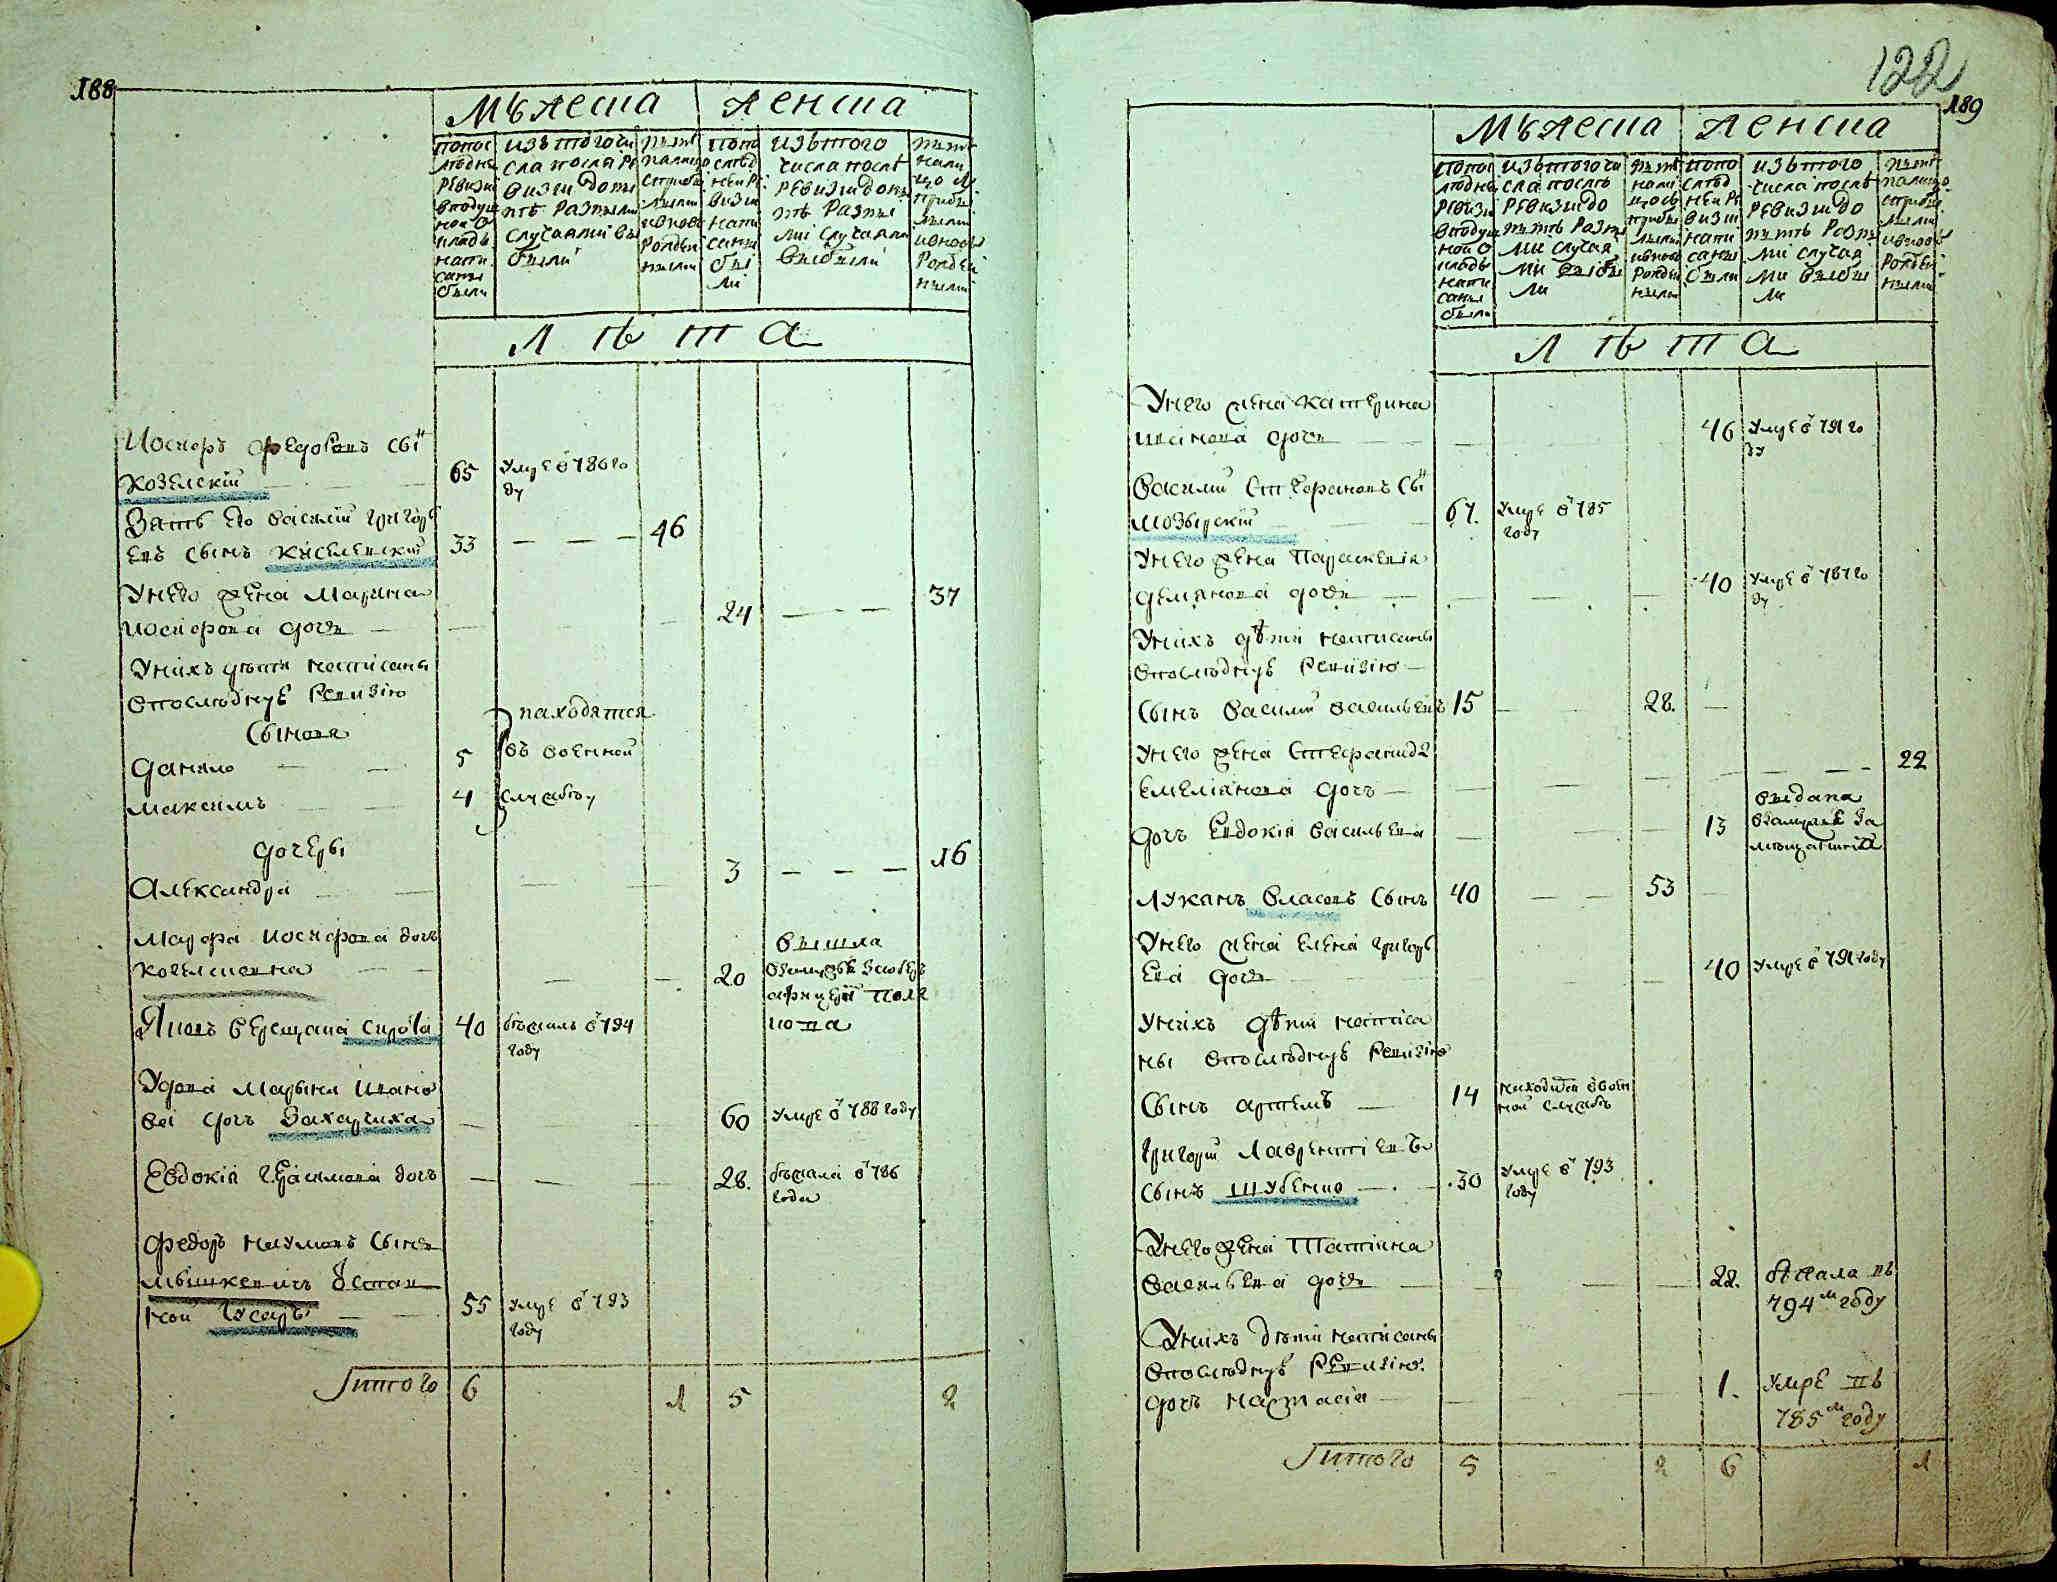 188
Мужеска женска
попос
лѣдне
ревизи
вподуш
ной о
кладъ
напи
саны
были
изъ того чи
сла посля ре
визии до ны
нѣ разными
случаями вы
были
ны нѣ
на лицо
сприбы
лыми
ивновь
рожден
ными
попо
слѣд
неи ре
визии
напи
саны
бы
ли
изъ того
числа послѣ
ревизии до ны
нѣ разны
ми случаями
выбыли
ны нѣ
нали
цо
прибы
лыми
ивновь
рожден
ными
Л ѣ т а
Иосифъ Федоровъ сын
Козелский 65 умре в 786 го
ду
Зять его Василий Григорь
евъ сынъ Киселевский 33 46
У него жена Марина
Иосифова дочь 24 37
У них дѣти написаны
в последнуе ревизию
Сыновя находятся
Данило 5 въ военной
Максимъ 4 службу
дочери
Александра 3 16
Марфа Иосифова дочь вышла
20
попа
40 бежалъ в 794
году
Удова Марына Ивано
ва дочь Захарчиха 60 умре в 788 году
Евдокия Герасимова дочь 28. бежала в 786
года
Федоръ Наумовъ сынъ
Мышкевичъ
55 умре в 793
году
Итого 6 1 5 2
122
189
Мужеска женска
попос
лѣдне
ревизи
вподуш
ной о
кладъ
напи
саны
были
изъ того чи
сла послѣ
ревизи до
нынѣ разны
ми случая
ми выбы
ли
ны нѣ
нали
цо съ
прибы
лыми
ивновь
рожден
ными
попо
слѣд
неи ре
визии
напи
саны
были
изъ того
числа послѣ
ревизии до
нынѣ разны
ми случая
ми выбы
ли
ны нѣ
налицо
сприбы
лыми
ивновь
рожден
ными
Л ѣ т а
У него жена Катерина
Иванова дочь 46 умре в 791 го
ду
Василий Стефановъ сын
Мозырский 67. умре в 785
году
У него жена Параскевия
Демянова дочь 40 умре в 787 го
ду
У них дѣти написаны
в последнуе ревизию
Сынъ Василий Васильевъ 15 28.
У него жена Стефанида 22
Емелиянова дочь
выдана
дочь Евдокия Васильева 13 взамуже за
Лукянъ Власовъ сынъ 40 53
У него жена Елена Григорь
ева дочь 40 умре в 791 году
У них дѣти написа
ны в последнуе ревизию
Сынъ Артемъ 14 находится в воен
ной службѣ
Григорий Лаврентиевъ
сынъ Шубенко 30 умре в 793
году
У него жена Татияна
Васильева дочь 22. бежала въ
794м году
У них дѣти написаны
в последнуе ревизию.
дочь Настасия 1. умре въ
785м году
Итого 5 2 6 1